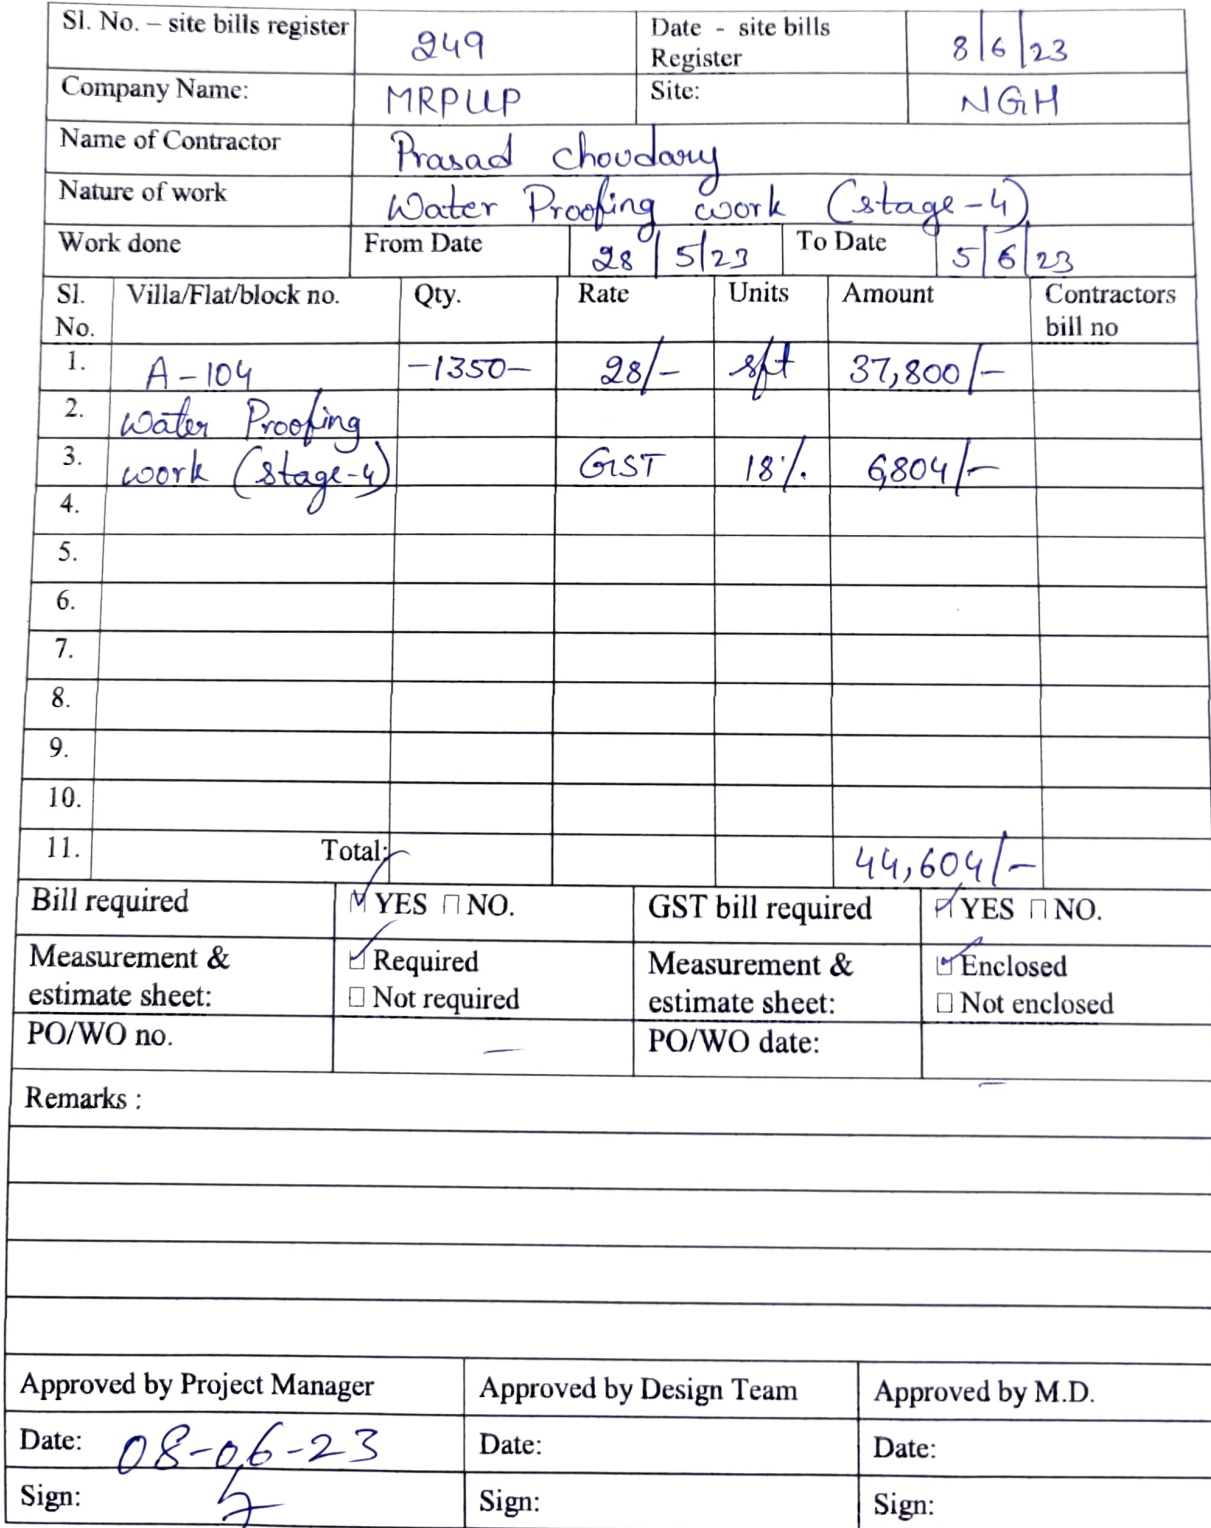 Sl. No. – site bills register 249 Date - site bills Register 8/6/23
Company Name: MRPLLP Site: NGH
Name of Contractor Prasad Choudary
Nature of work Water Proofing work (stage-4)
Work done From Date 28/5/23 To Date 5/6/23
Sl. No. Villa/Flat/block no. Qty. Rate Units Amount Contractors bill no
1. A-104 -1350- 28/- sft 37,800/-
2. Water Proofing
3. work (stage-4) GST 18%. 6,804/-
4.
5.
6.
7.
8.
9.
10.
11. Total: 44,604/-
Bill required YES NO. GST bill required YES NO.
Measurement & estimate sheet: Required Not required Measurement & estimate sheet: Enclosed Not enclosed
PO/WO no. — PO/WO date: —
Remarks :
Approved by Project Manager Approved by Design Team Approved by M.D.
Date: 08-06-23 Date: Date:
Sign: Sign: Sign: